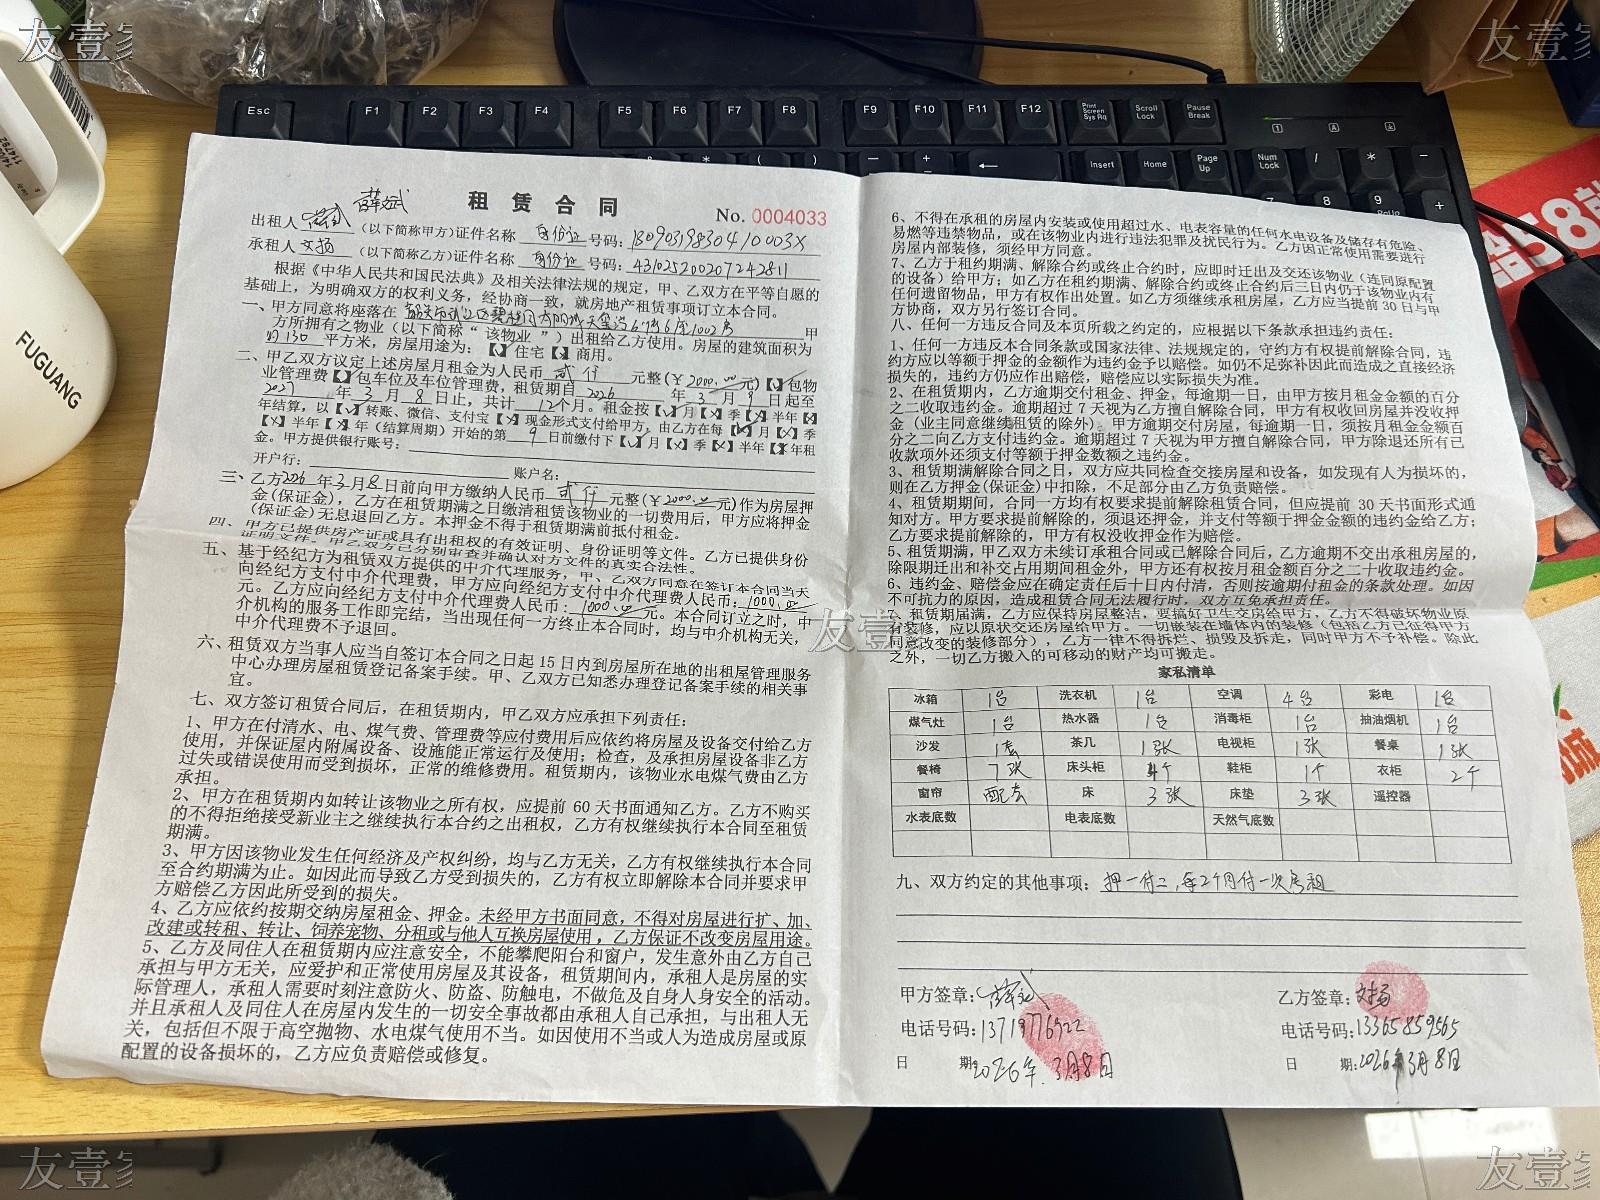 友壹家
友壹家
Esc F1 F2 F3 F4 F5 F6 F7 F8 F9 F10 F11 F12 Print Screen Sys Rq Scroll Lock Pause Break
Insert Home Page Up Num Lock / * −
7 8 9 PgUp +
FUGUANG
薛斌
租赁合同
No. 0004033
出租人 (以下简称甲方)证件名称 身份证 号码: 13090319830410003X
承租人 文扬 (以下简称乙方)证件名称 身份证 号码: 431025200207242811
根据《中华人民共和国民法典》及相关法律法规的规定,甲、乙双方在平等自愿的
基础上,为明确双方的权利义务,经协商一致,就房地产租赁事项订立本合同。
一、甲方同意将座落在 1002房 甲
方所拥有之物业(以下简称“该物业”)出租给乙方使用。房屋的建筑面积为
约130 平方米,房屋用途为:【√】住宅【×】商用。
二、甲乙双方议定上述房屋月租金为人民币 贰仟 元整(¥2000.00元)【】包物
业管理费【】包车位及车位管理费,租赁期自 2026 年 3 月 9 日起至
2027 年 3 月 8 日止,共计 12个月。租金按【√】月【×】季【×】半年【×】
年结算,以【√】转账、微信、支付宝【×】现金形式支付给甲方,由乙方在每【√】月【×】季
【×】半年【×】年(结算周期)开始的第 9 日前缴付下【√】月【×】季【×】半年【×】年租
金。甲方提供银行账号:
开户行: 账户名:
三、乙方2026年3月8日前向甲方缴纳人民币 贰仟 元整(¥2000.00元)作为房屋押
金(保证金),乙方在租赁期满之日缴清租赁该物业的一切费用后,甲方应将押金
(保证金)无息退回乙方。本押金不得于租赁期满前抵付租金。
四、甲方已提供房产证或具有出租权的有效证明、身份证明等文件。乙方已提供身份
证明文件。甲乙双方已分别审查并确认对方文件的真实合法性。
五、基于经纪方为租赁双方提供的中介代理服务,甲、乙双方同意在签订本合同当天
向经纪方支付中介代理费,甲方应向经纪方支付中介代理费人民币:1000.00
元。乙方应向经纪方支付中介代理费人民币:1000.00元。本合同订立之时,中
介机构的服务工作即完结,当出现任何一方终止本合同时,均与中介机构无关,
中介代理费不予退回。
六、租赁双方当事人应当自签订本合同之日起 15 日内到房屋所在地的出租屋管理服务
中心办理房屋租赁登记备案手续。甲、乙双方已知悉办理登记备案手续的相关事
宜。
七、双方签订租赁合同后,在租赁期内,甲乙双方应承担下列责任:
1、甲方在付清水、电、煤气费、管理费等应付费用后应依约将房屋及设备交付给乙方
使用,并保证屋内附属设备、设施能正常运行及使用;检查,及承担房屋设备非乙方
过失或错误使用而受到损坏,正常的维修费用。租赁期内,该物业水电煤气费由乙方
承担。
2、甲方在租赁期内如转让该物业之所有权,应提前 60 天书面通知乙方。乙方不购买
的不得拒绝接受新业主之继续执行本合约之出租权,乙方有权继续执行本合同至租赁
期满。
3、甲方因该物业发生任何经济及产权纠纷,均与乙方无关,乙方有权继续执行本合同
至合约期满为止。如因此而导致乙方受到损失的,乙方有权立即解除本合同并要求甲
方赔偿乙方因此所受到的损失。
4、乙方应依约按期交纳房屋租金、押金。未经甲方书面同意,不得对房屋进行扩、加、
改建或转租、转让、饲养宠物、分租或与他人互换房屋使用,乙方保证不改变房屋用途。
5、乙方及同住人在租赁期内应注意安全,不能攀爬阳台和窗户,发生意外由乙方自己
承担与甲方无关,应爱护和正常使用房屋及其设备,租赁期间内,承租人是房屋的实
际管理人,承租人需要时刻注意防火、防盗、防触电,不做危及自身人身安全的活动。
并且承租人及同住人在房屋内发生的一切安全事故都由承租人自己承担,与出租人无
关,包括但不限于高空抛物、水电煤气使用不当。如因使用不当或人为造成房屋或原
配置的设备损坏的,乙方应负责赔偿或修复。
6、不得在承租的房屋内安装或使用超过水、电表容量的任何水电设备及储存有危险、
易燃等违禁物品,或在该物业内进行违法犯罪及扰民行为。乙方因正常使用需要进行
房屋内部装修,须经甲方同意。
7、乙方于租约期满、解除合约或终止合约时,应即时迁出及交还该物业(连同原配置
的设备)给甲方;如乙方在租约期满、解除合约或终止合约后三日内仍于该物业内有
任何遗留物品,甲方有权作出处置。如乙方须继续承租房屋,乙方应当提前 30 日与甲
方协商,双方另行签订合同。
八、任何一方违反本合同及本页所载之约定的,应根据以下条款承担违约责任:
1、任何一方违反本合同条款或国家法律、法规规定的,守约方有权提前解除合同,违
约方应以等额于押金的金额作为违约金予以赔偿。如仍不足弥补因此而造成之直接经济
损失的,违约方仍应作出赔偿,赔偿应以实际损失为准。
2、在租赁期内,乙方逾期交付租金、押金,每逾期一日,由甲方按月租金金额的百分
之二收取违约金。逾期超过 7 天视为乙方擅自解除合同,甲方有权收回房屋并没收押
金(业主同意继续租赁的除外)。甲方逾期交付房屋,每逾期一日,须按月租金金额百
分之二向乙方支付违约金。逾期超过 7 天视为甲方擅自解除合同,甲方除退还所有已
收款项外还须支付等额于押金数额之违约金。
3、租赁期满解除合同之日,双方应共同检查交接房屋和设备,如发现有人为损坏的,
则在乙方押金(保证金)中扣除,不足部分由乙方负责赔偿。
4、租赁期期间,合同一方均有权要求提前解除租赁合同,但应提前 30 天书面形式通
知对方。甲方要求提前解除的,须退还押金,并支付等额于押金金额的违约金给乙方;
乙方要求提前解除的,甲方有权没收押金作为赔偿。
5、租赁期满,甲乙双方未续订承租合同或已解除合同后,乙方逾期不交出承租房屋的,
除限期迁出和补交占用期间租金外,甲方还有权按月租金额百分之二十收取违约金。
6、违约金、赔偿金应在确定责任后十日内付清,否则按逾期付租金的条款处理。如因
不可抗力的原因,造成租赁合同无法履行时,双方互免承担责任。
7、租赁期届满,乙方应保持房屋整洁,要搞好卫生交房给甲方,乙方不得破坏物业原
有装修,应以原状交还房屋给甲方。一切嵌装在墙体内的装修(包括乙方已征得甲方
同意改变的装修部分),乙方一律不得拆烂、损毁及拆走,同时甲方不予补偿。除此
之外,一切乙方搬入的可移动的财产均可搬走。
友壹
家私清单
冰箱 1台 洗衣机 1台 空调 4台 彩电 1台
煤气灶 1台 热水器 1台 消毒柜 1台 抽油烟机 1台
沙发 1套 茶几 1张 电视柜 1张 餐桌 1张
餐椅 7张 床头柜 4个 鞋柜 1个 衣柜 2个
窗帘 配套 床 3张 床垫 3张 遥控器
水表底数 电表底数 天然气底数
九、双方约定的其他事项: 押一付二,每2个月付一次房租
甲方签章:
电话号码:13719776922
日 期:2026年.3月8日
乙方签章: 文扬
电话号码:13365859565
日 期:2026年3月8日
友壹家
友壹家